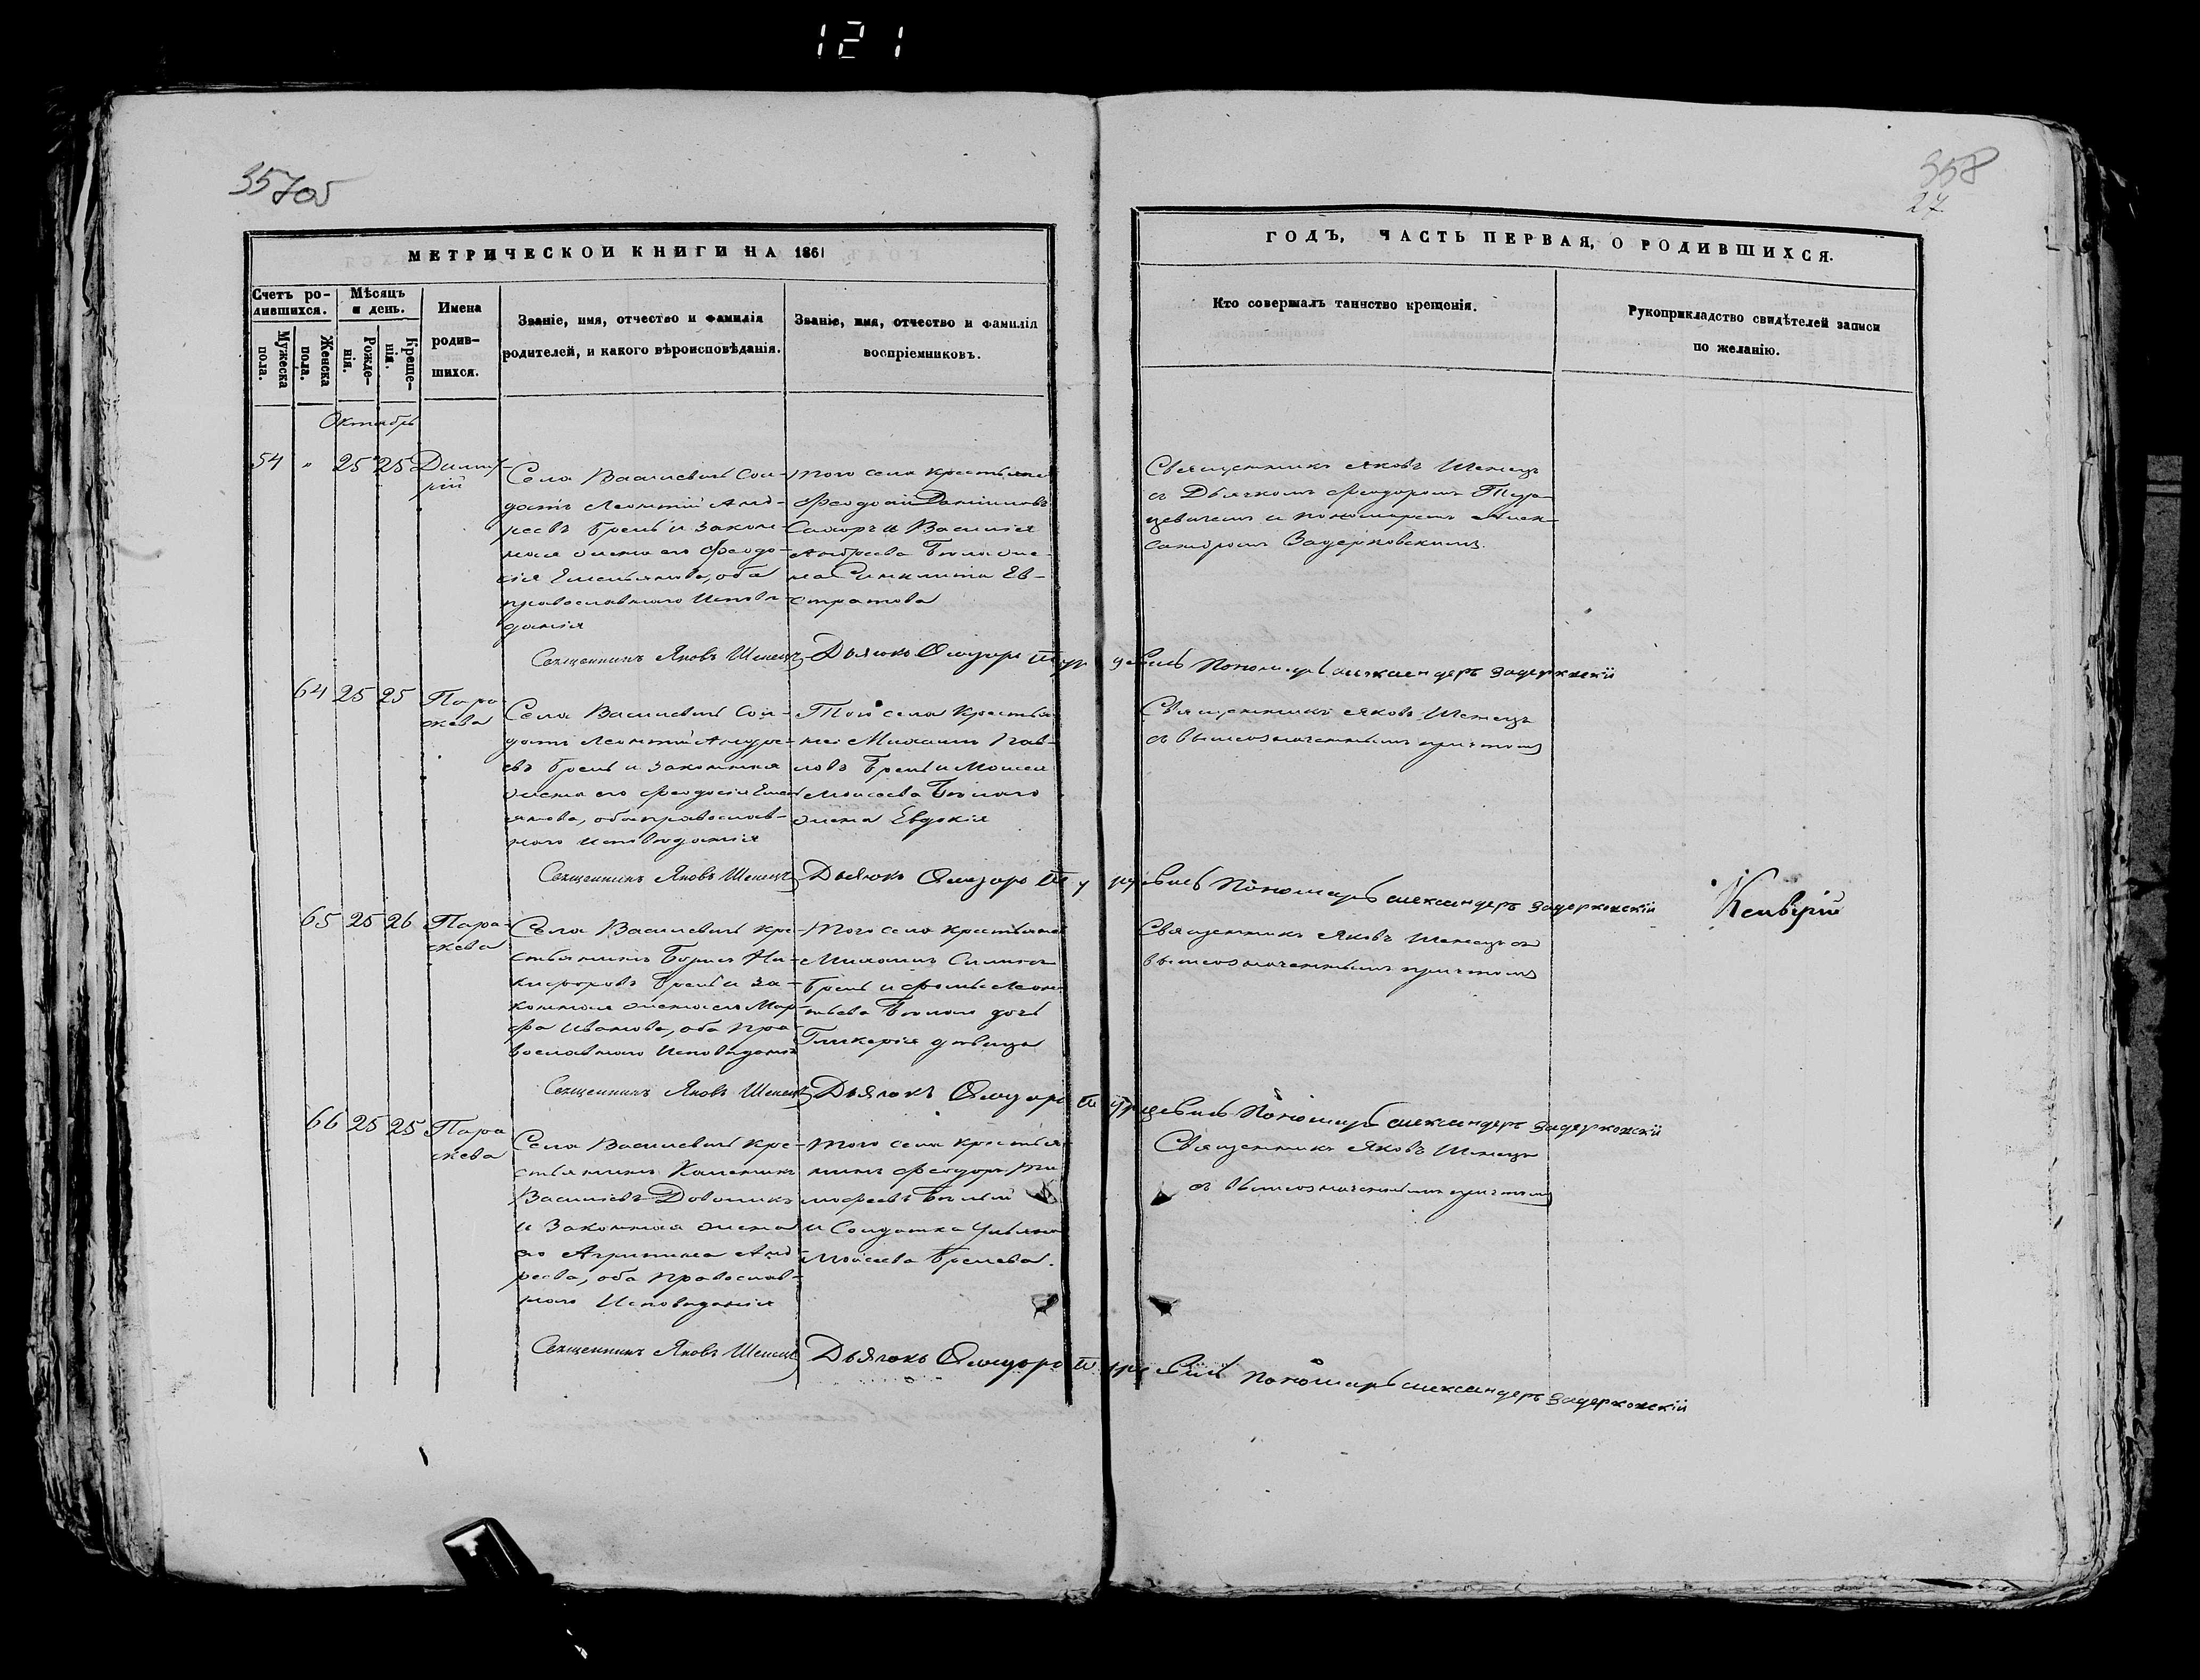 121
357об
358
27
МЕТРИЧЕСКОЙ КНИГИ НА 1861
ГОДЪ, ЧАСТЬ ПЕРВАЯ, О РОДИВШИХСЯ.
Счетъ ро-
дившихся.
Мужеска
пола.
Женска
пола.
Мѣсяцъ
и день.
Рожде-
нія.
Креще-
нія.
Имена
родив-
шихся.
Званіе, имя, отчество и фамилія
родителей, и какого вѣроисповѣданія.
Званіе, имя, отчество и фамилія
воспріемниковъ.
Кто совершалъ таинство крещенія.
Рукоприкладство свидѣтелей записи
по желанію.
Октябрь
54 " 25 25 Димит-
рій
Села Василевич Сол-
датъ Леонтій Анд-
реевъ Брель и закон-
ная жена его Феодо-
сія Емельянова, оба
православнаго Исповѣ-
данія
того села крестьяне
Феодот Даніиловъ
и Василія
Андреева жо-
на Синклита Ев-
стратова
Священникъ Яковъ Шенецъ
съ Дьячкомъ Феодоромъ Тура-
цевичемъ и пономаремъ Алек-
сандромъ Задерковскимъ.
Священникъ Яковъ Шенецъ Дьячокъ Феодоръ Турцевичъ Пономарь Александеръ Задерковскій
64 25 25 Пара
скева
Села Василевич Сол-
датъ Леонтій Андре-
евъ Брель и законная
жена его Феодосія Емель
янова, оба православ-
наго исповѣданія
Того села крестья
не Михаилъ Пав-
ловъ Брель и Моисея
Моисеева Бѣлаго
жена Евдокія
Священникъ Яковъ Шенецъ
съ вышеозначеннымъ причтомъ
Священникъ Яковъ Шенецъ Дьячокъ Феодоръ Турцевичъ Пономарь Александеръ Задерковскій
65 25 26 Пара-
скева
Села Василевич кре-
стьянинъ Борисъ Ни-
кифоровъ Брель и за-
конная жена его Мар-
фа Иванова, оба пра-
вославнаго Исповѣданія
Того села крестьяне
Михаилъ
Брель и Фомы Леон-
тьева Бѣлаго дочь
Гликерія дѣвица
Священникъ Яковъ Шенецъ съ
вышеозначеннымъ причтомъ
Священникъ Яковъ Шенецъ Дьячокъ Феодоръ Турцевичъ Пономарь Александеръ Задерковскій
66 25 25 Пара
скева
Села Василевич кре-
стьянинъ
Василіевъ
и законная жена
его Агрипина Анд-
реева, оба православ-
наго Исповѣданія
Того села крестья-
нинъ Феодоръ Ти
мофеевъ Бѣлый
и Солдатка Ульяна
Моисеева Брелева.
Священникъ Яковъ Шенецъ
съ вышеозначеннымъ причтомъ
Священникъ Яковъ Шенецъ Дьячокъ Феодоръ Турцевичъ Пономарь Александеръ Задерковскій